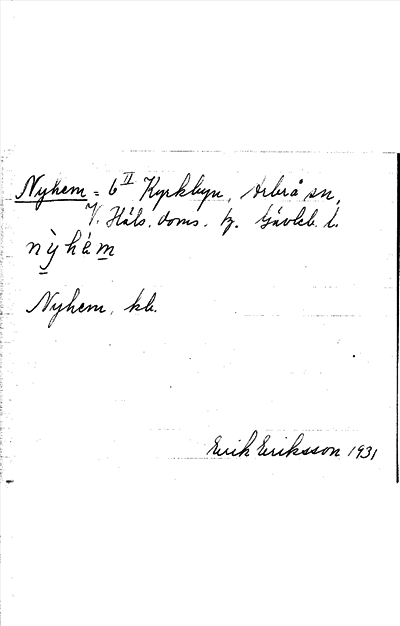 Nyhem = 6 II Kyrkbyn, Arbrå sn,
V. Häls. doms. tg. Gävleb. l.
nỳhèm
Nyhem, kb.
Erik Eriksson 1931